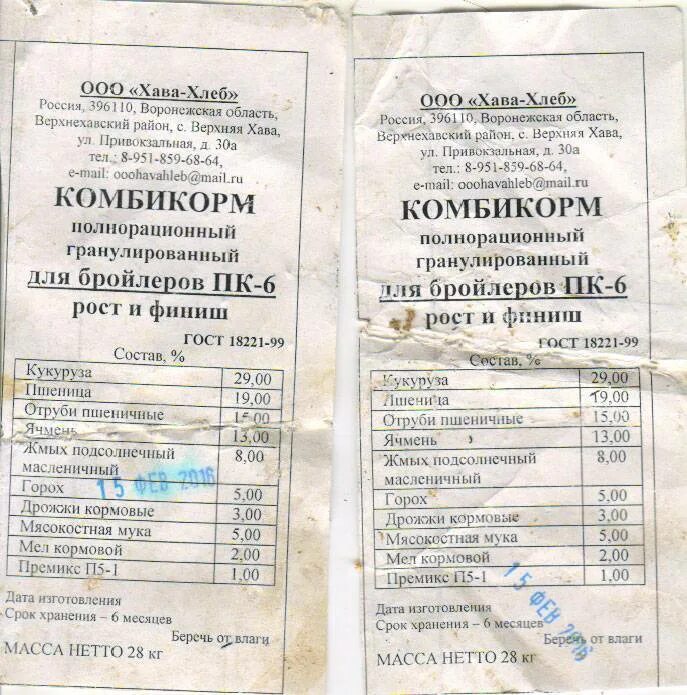 ООО «Хава-Хлеб»
Россия, 396110, Воронежская область,
Верхнехавский район, с. Верхняя Хава,
ул. Привокзальная, д. 30а
тел.: 8-951-859-68-64,
e-mail: ooohavahleb@mail.ru
КОМБИКОРМ
полнорационный
гранулированный
для бройлеров ПК-6
рост и финиш
ГОСТ 18221-99
Состав, %
Кукуруза 29,00
Пшеница 19,00
Отруби пшеничные 15,00
Ячмень 13,00
Жмых подсолнечный 8,00
масленичный
15 ФЕВ 2016
Горох 5,00
Дрожжи кормовые 3,00
Мясокостная мука 5,00
Мел кормовой 2,00
Премикс П5-1 1,00
Дата изготовления
Срок хранения – 6 месяцев
Беречь от влаги
МАССА НЕТТО 28 кг
ООО «Хава-Хлеб»
Россия, 396110, Воронежская область,
Верхнехавский район, с. Верхняя Хава,
ул. Привокзальная, д. 30а
тел.: 8-951-859-68-64,
e-mail: ooohavahleb@mail.ru
КОМБИКОРМ
полнорационный
гранулированный
для бройлеров ПК-6
рост и финиш
ГОСТ 18221-99
Состав, %
Кукуруза 29,00
Пшеница 19,00
Отруби пшеничные 15,00
Ячмень 13,00
Жмых подсолнечный 8,00
масленичный
Горох 5,00
Дрожжи кормовые 3,00
Мясокостная мука 5,00
Мел кормовой 2,00
Премикс П5-1 1,00
15 ФЕВ 2016
Дата изготовления
Срок хранения – 6 месяцев
Беречь от влаги
МАССА НЕТТО 28 кг